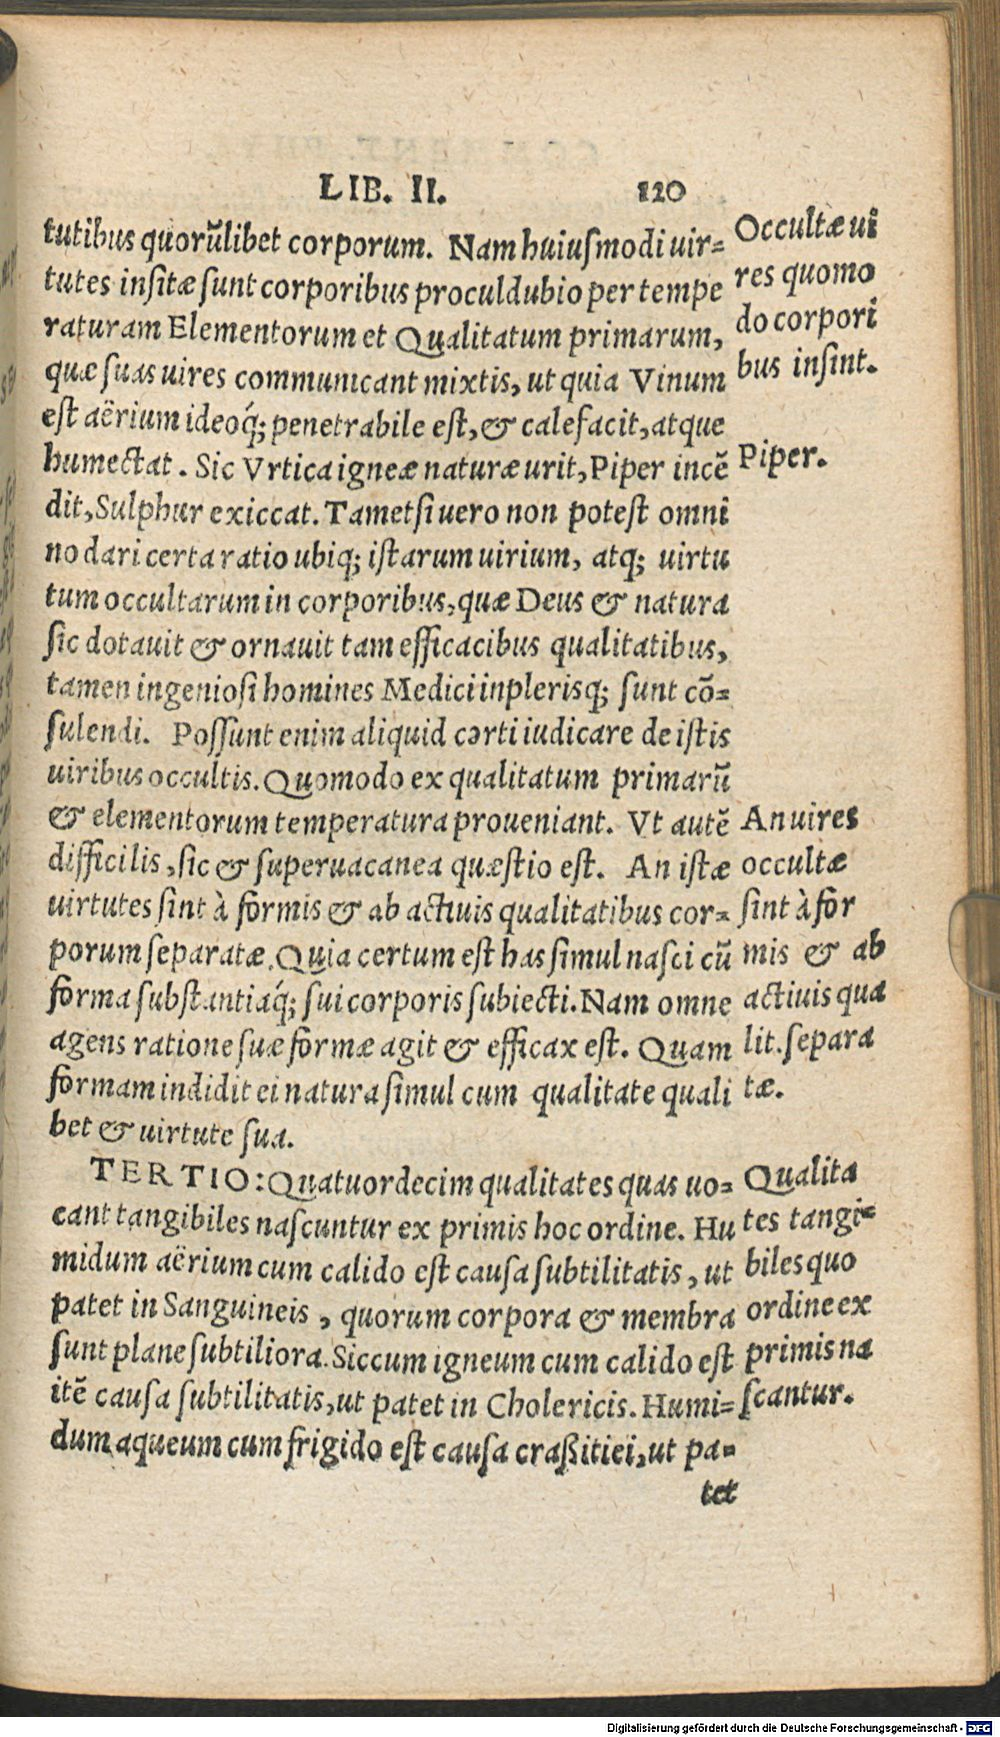 LIB. II. 120
tutibus quorũlibet corporum. Nam huiusmodi uir=
tutes insitæ sunt corporibus proculdubio per tempe
raturam Elementorum et Qualitatum primarum,
quæ suas uires communicant mixtis, ut quia Vinum
est aërium ideoq́; penetrabile est, & calefacit, atque
humectat. Sic Vrtica igneæ naturæ urit, Piper incẽ
dit, Sulphur exiccat. Tametsi uero non potest omni
no dari certa ratio ubiq; istarum uirium, atq; uirtu
tum occultarum in corporibus, quæ Deus & natura
sic dotauit & ornauit tam efficacibus qualitatibus,
tamen ingeniosi homines Medici inplerisq; sunt cõ=
sulendi. Possunt enim aliquid certi iudicare de istis
uiribus occultis. Quomodo ex qualitatum primarũ
& elementorum temperatura proueniant. Vt autẽ
difficilis, sic & superuacanea quæstio est. An istæ
uirtutes sint à formis & ab actiuis qualitatibus cor=
porum separatæ. Quia certum est has simul nasci cũ
forma substantiaq́; sui corporis subiecti. Nam omne
agens ratione suæ formæ agit & efficax est. Quam
formam indidit ei natura simul cum qualitate quali
bet & uirtute sua.
TERTIO: Quatuordecim qualitates quas uo=
cant tangibiles nascuntur ex primis hoc ordine. Hu
midum aërium cum calido est causa subtilitatis, ut
patet in Sanguineis, quorum corpora & membra
sunt plane subtiliora. Siccum igneum cum calido est
itẽ causa subtilitatis, ut patet in Cholericis. Humi=
dum aqueum cum frigido est causa craßitiei, ut pa=
tet
Occultæ ui
res quomo
do corpori
bus insint.
Piper.
An uires
occultæ
sint à for
mis & ab
actiuis qua
lit. separa
tæ.
Qualita
tes tangi=
biles quo
ordine ex
primis na
scantur.
Digitalisierung gefördert durch die Deutsche Forschungsgemeinschaft - DFG